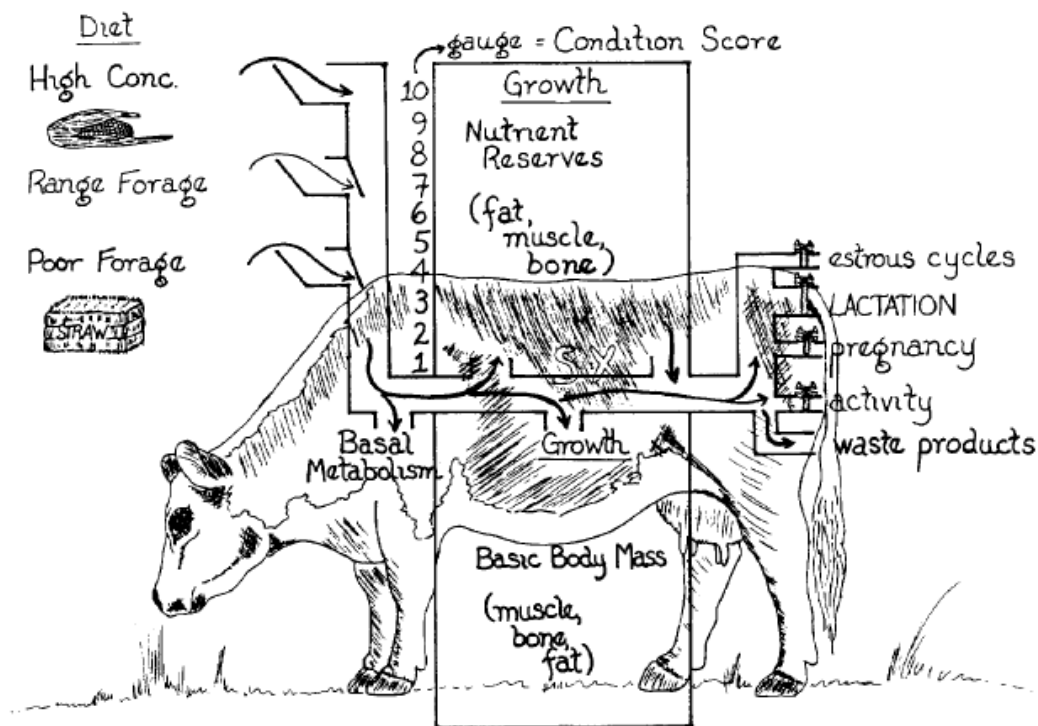 Diet
gauge = Condition Score
High Conc.
Range Forage
Poor Forage
STRAW
10
9
8
7
6
5
4
3
2
1
Growth
Nutrient
Reserves
(fat,
muscle,
bone)
estrous cycles
LACTATION
pregnancy
activity
waste products
Basal
Metabolism
Growth
Basic Body Mass
(muscle,
bone,
fat)